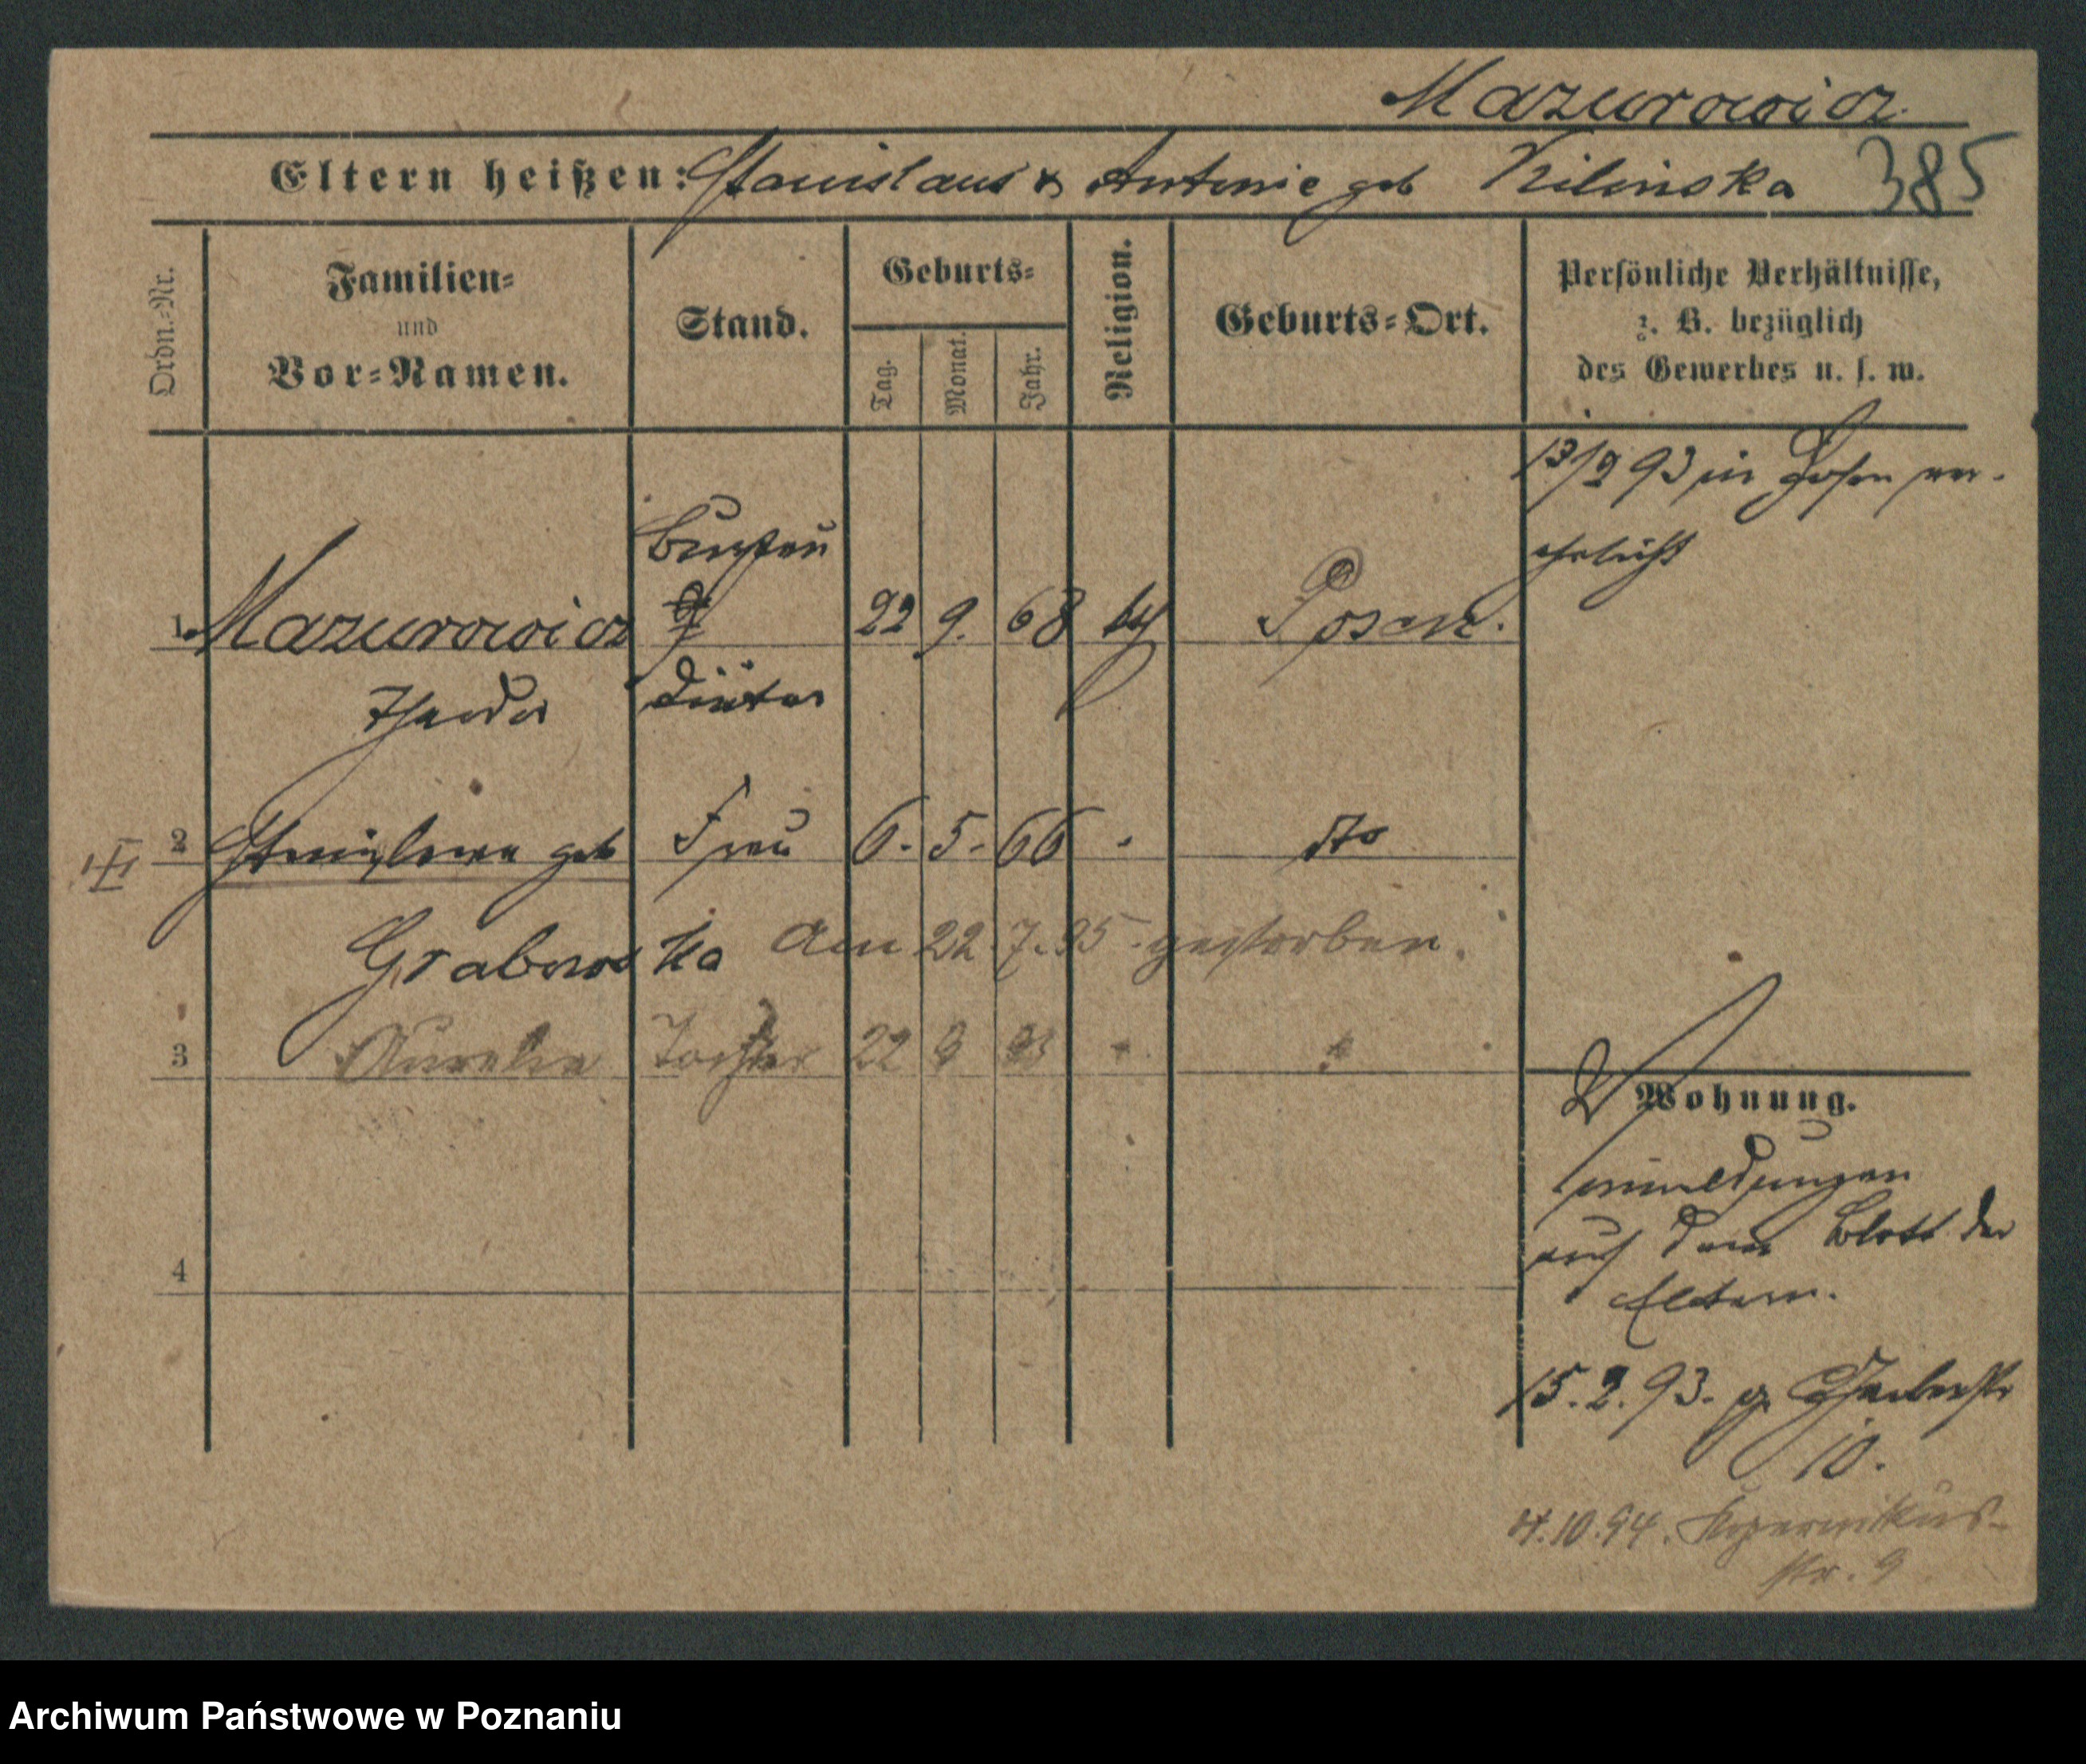 Mazurowicz
Eltern heißen: Stanislaus & Antonie geb Kilinska 385
Ordn.-Nr.
Familien-
und
Vor-Namen.
Stand.
Geburts-
Tag.
Monat.
Jahr.
Religion.
Geburts-Ort.
Persönliche Verhältnisse,
z. B. bezüglich
des Gewerbes u. s. w.
13/2 93 in Posen ver-
ehelicht
1 Mazurowicz 22 9. 68 Posen.
Theodor Diätar
2 geb Frau 6. 5. 66 dto
Grabowska am 22.7.95 gestorben.
3 Aurelie Tochter 22
4
Wohnung.
auf dem Blatt der
Eltern.
15.2.93.
10.
10.94. Kopernikus-
str. 9
Archiwum Państwowe w Poznaniu